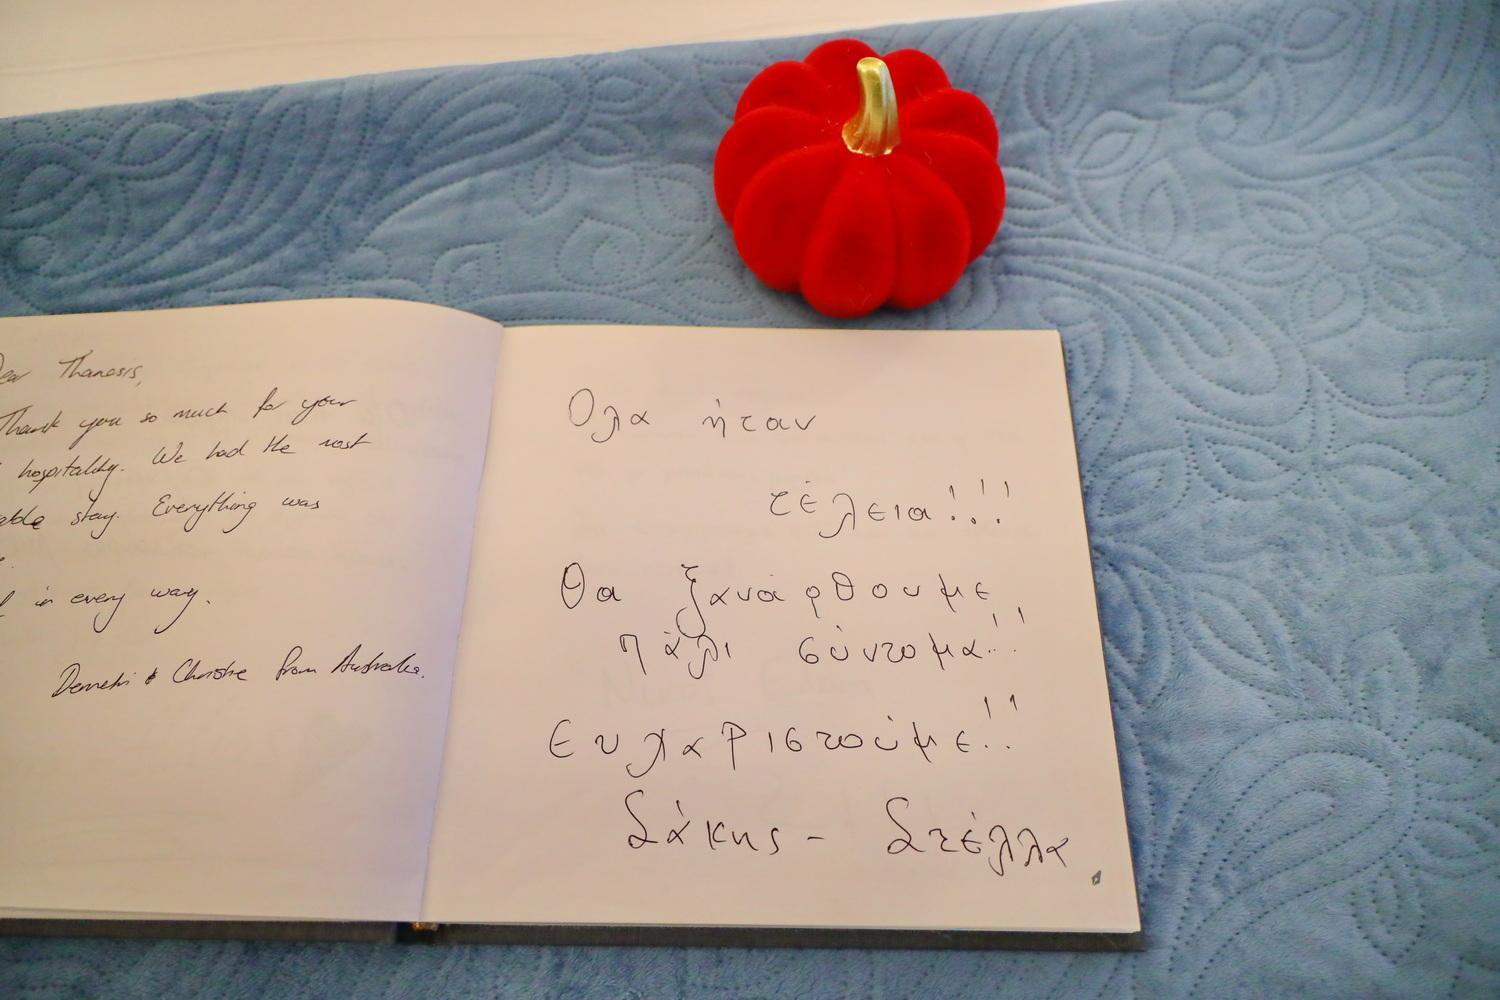 Dear Thanasis,
Thank you so much for your
hospitality. We had the most
stay. Everything was
in every way.
Demetri & Christie from Australia.
Ολα ήταν
τέλεια!!!
Θα ξανάρθουμε
πάλι σύντομα!!
Ευχαριστούμε!!
Σάκης - Στέλλα